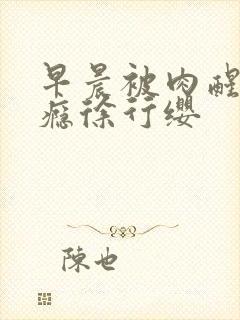 早晨被肉醒
瘾徐行缨
陳也